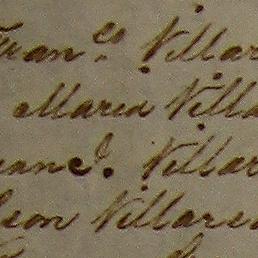 Fran.co Villar
Maria Villa
uanc.a Villar
leon Villarea